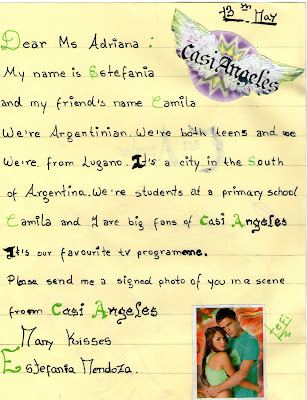 13th May
Casi Angeles
Dear Ms Adriana:
My name is Estefania
and my friend's name Camila
We're Argentinian. We're both teens and we
We're from Lugano. It's a city in the South
of Argentina. We're students at a primary school
Camila and I are big fans of Casi Angeles
It's our favourite tv programme.
Please send me a signed photo of you in a scene
from Casi Angeles
Many Kisses
Estefania Mendoza.